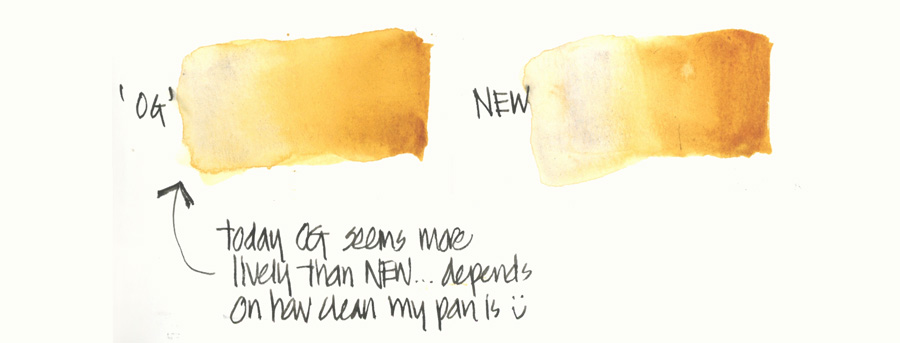 'OG'
NEW
today OG seems more
lively than NEW... depends
on how clean my pan is :)